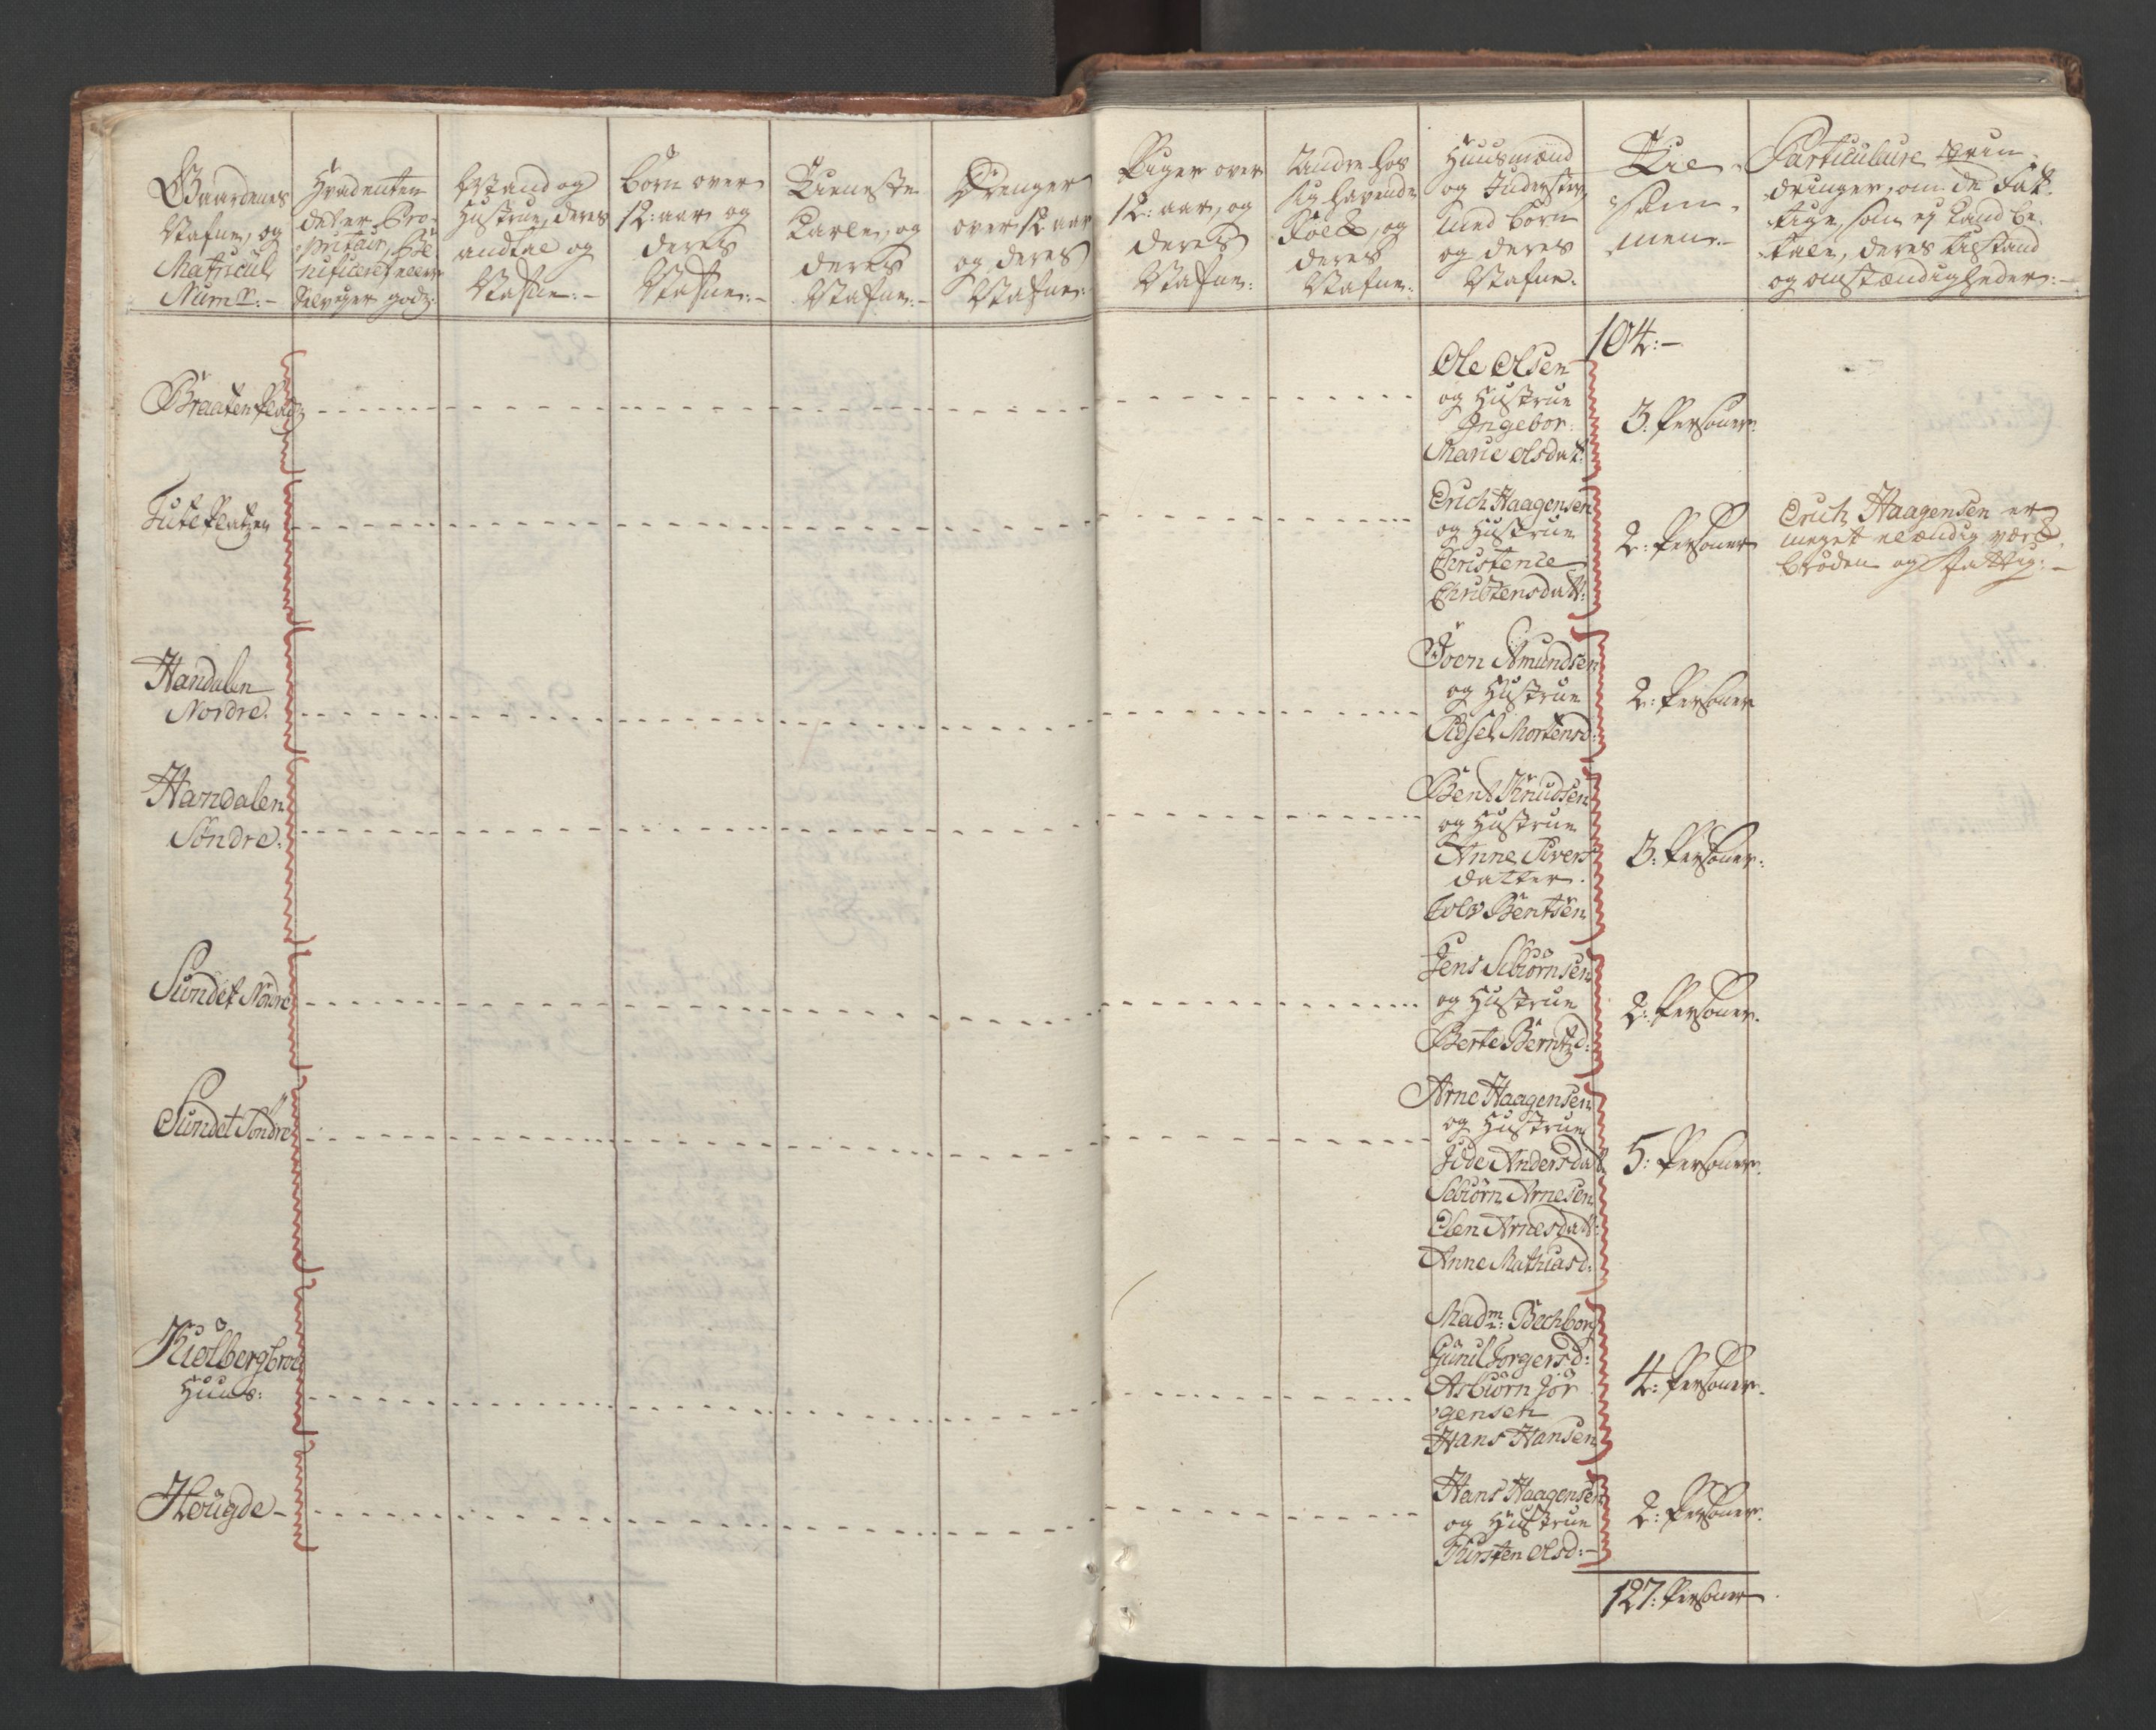 Gaardenes
Nafne, og
Matricul
Num:r:-
Hvadenten
det er Pro-
pritair, Be-
nificeret eller
Selveyer godz:
Mand og
Hustrue, deres
andtal og
Nafne:-
Börn over
12: aar, og
deres
Nafne:-
Tieneste
Karle, og
deres
Nafne:-
Drenger
over 12 aar
og deres
Nafne:
Piger over
12: aar, og
deres
Nafne:
Andre hos
sig havende
Folk, og
deres
Nafne:
Huusmænd
og Inderster,
med börn
og deres
Nafne:
Til-
sam-
men:-
Particulaire Erin-
dringer, om de Fat-
tige, som ej kand be-
tale, deres tilstand
og omstændigheder:-
104:-
Braaten Pladz
Ole Olsen
og Hustrue
Ingebor:
Marie Olsdat:
3: Personer.
Tutepladzen
Erich Haagensen
og Hustrue
Christence
Christensdatt:
2: Personer
Erich Haagensen er
meget elændig værk-
bröden og fattig:-
Handalen
Nordre.
Joen Amundsen
og Hustrue
Adsel Mortensd:
2: Personer
Handalen
Söndre.
Bent Knudsen
og Hustrue
Anne Sivers
datter.
Tolv Bentsen
3: Personer:
Sundet Nordre
Jens Sebiörnsen
og Hustrue
Berte Berntzd:
2: Personer.
Sundet Söndre
Arne Haagensen
og Hustrue
Jide Andersdatt
Sebiörn Arnesen
Elen Arnesdatt:
Anne Mathiasd:
5: Personer.
Kiölbergbroe
Huus:
Mad:m: Bechborg
Gunil Torgersd:
Asbiörn Jör-
gensen
Hans Hansen
4: Personer.
Hougde -
Hans Haagensen
og Hustrue
Kirsten Olsd:-
2: Personer.
127: Personer